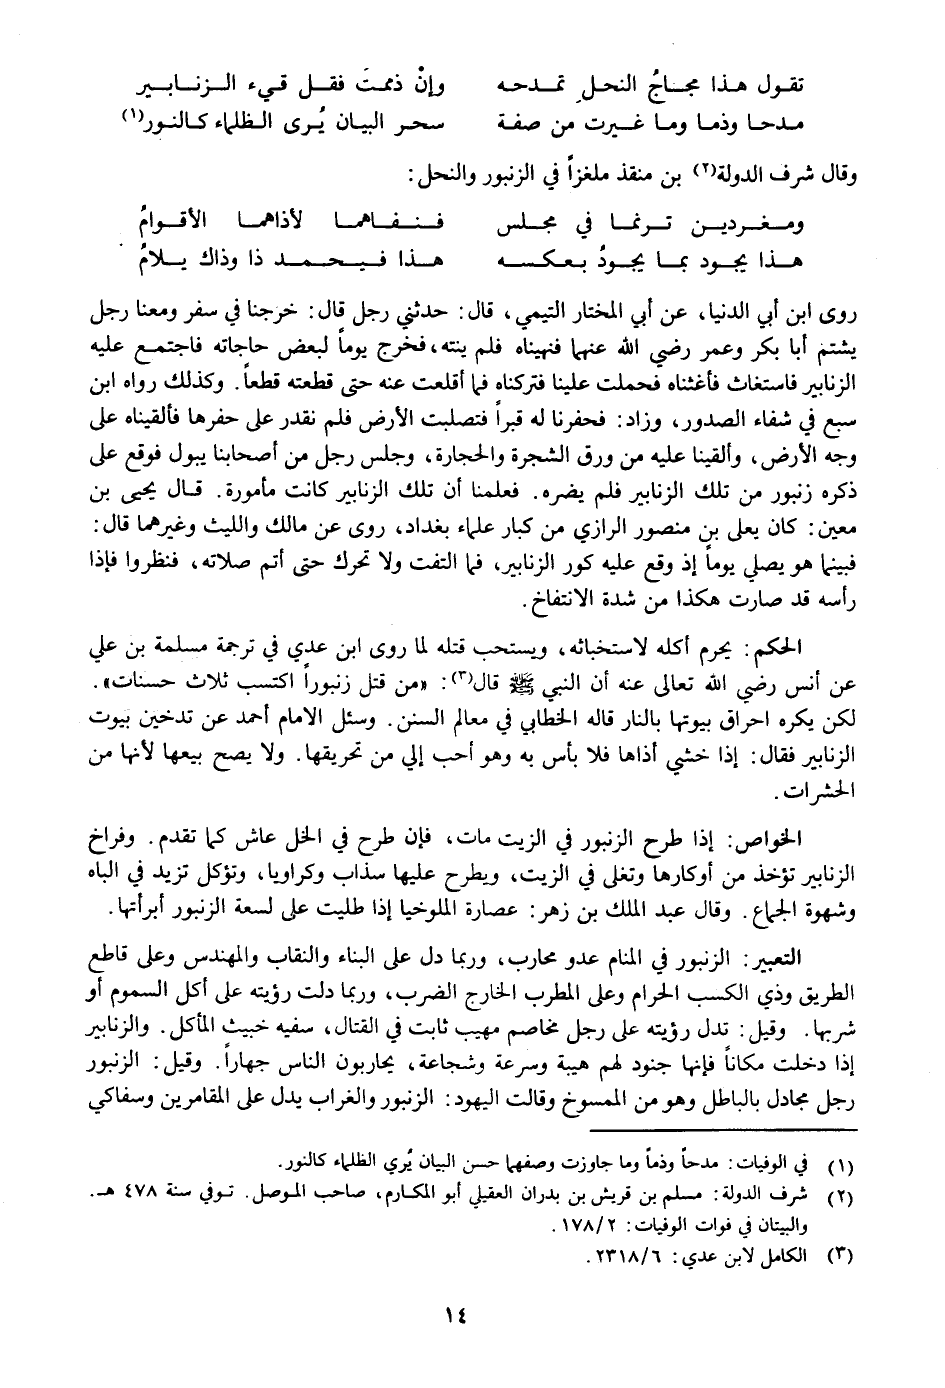 تقول هذا مجاجُ النحل تمدحه وإنْ ذممتَ فقل قيء الزنابير
مدحا وذما وما غيرت من صفة سحر البيان يُرى الظلماء كالنور(١)
وقال شرف الدولة(٢) بن منقذ ملغزاً في الزنبور والنحل:
ومغردين ترنما في مجلس فنفاهما لأذاهما الأقوامُ
هذا يجود بما يجودُ بعكسه هذا فيحمد ذا وذاك يلامُ
روى ابن أبي الدنيا، عن أبي المختار التيمي، قال: حدثني رجل قال: خرجنا في سفر ومعنا رجل
يشتم أبا بكر وعمر رضي الله عنهما فنهيناه فلم ينته، فخرج يوماً لبعض حاجاته فاجتمع عليه
الزنابير فاستغاث فأغثناه فحملت علينا فتركناه فما أقلعت عنه حتى قطعته قطعاً. وكذلك رواه ابن
سبع في شفاء الصدور، وزاد: فحفرنا له قبراً فتصلبت الأرض فلم نقدر على حفرها فألقيناه على
وجه الأرض، وألقينا عليه من ورق الشجرة والحجارة، وجلس رجل من أصحابنا يبول فوقع على
ذكره زنبور من تلك الزنابير فلم يضره. فعلمنا أن تلك الزنابير كانت مأمورة. قال يحيى بن
معين: كان يعلى بن منصور الرازي من كبار علماء بغداد، روى عن مالك والليث وغيرهما قال:
فبينما هو يصلي يوماً إذ وقع عليه كور الزنابير، فما التفت ولا تحرك حتى أتم صلاته، فنظروا فإذا
رأسه قد صارت هكذا من شدة الانتفاخ.
الحكم: يحرم أكله لاستخباثه، ويستحب قتله لما روى ابن عدي في ترجمة مسلمة بن علي
عن أنس رضي الله تعالى عنه أن النبي ﷺ قال(٣): «من قتل زنبوراً اكتسب ثلاث حسنات».
لكن يكره احراق بيوتها بالنار قاله الخطابي في معالم السنن. وسئل الامام أحمد عن تدخين بيوت
الزنابير فقال: إذا خشي أذاها فلا بأس به وهو أحب إلي من تحريقها. ولا يصح بيعها لأنها من
الحشرات.
الخواص: إذا طرح الزنبور في الزيت مات، فإن طرح في الخل عاش كما تقدم. وفراخ
الزنابير تؤخذ من أوكارها وتغلى في الزيت، ويطرح عليها سذاب وكراويا، وتؤكل تزيد في الباه
وشهوة الجماع. وقال عبد الملك بن زهر: عصارة الملوخيا إذا طليت على لسعة الزنبور أبرأتها.
التعبير: الزنبور في المنام عدو محارب، وربما دل على البناء والنقاب والمهندس وعلى قاطع
الطريق وذي الكسب الحرام وعلى المطرب الخارج الضرب، وربما دلت رؤيته على أكل السموم أو
شربها. وقيل: تدل رؤيته على رجل مخاصم مهيب ثابت في القتال، سفيه خبيث المأكل. والزنابير
إذا دخلت مكاناً فإنها جنود لهم هيبة وسرعة وشجاعة، يحاربون الناس جهاراً. وقيل: الزنبور
رجل مجادل بالباطل وهو من الممسوخ وقالت اليهود: الزنبور والغراب يدل على المقامرين وسفاكي
(١) في الوفيات: مدحاً وذماً وما جاوزت وصفهما حسن البيان يُري الظلماء كالنور.
(٢) شرف الدولة: مسلم بن قريش بن بدران العقيلي أبو المكارم، صاحب الموصل. توفي سنة ٤٧٨ هـ.
والبيتان في فوات الوفيات: ١٧٨/٢.
(٣) الكامل لابن عدي: ٢٣١٨/٦.
١٤